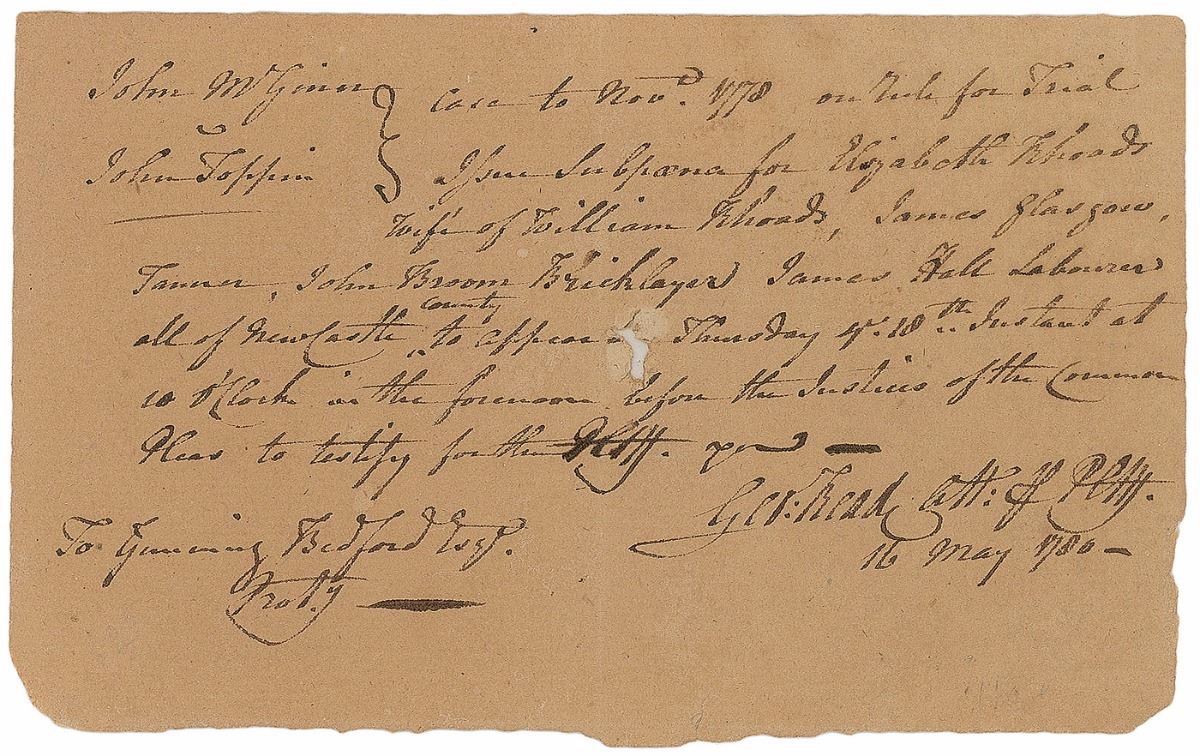 John McGinn } Case to Novr. 1778 on rule for Trial
v
John Toppin } Issue Subpœna for Elizabeth Rhoads
Wife of William Rhoads, James Glasgow,
Tanner, John Broom Bricklayer James Hall Labourer
county
all of NewCastle ^ to appear Thursday ye. 18th. Instant at
10 O'Clock in the forenoon before the Justices of the Common
Pleas to testify for the Pltff. per
Geo: Read Att: pr Pltff.
16 May 1780 —
To Gunning Bedford Esqr.
Proty —